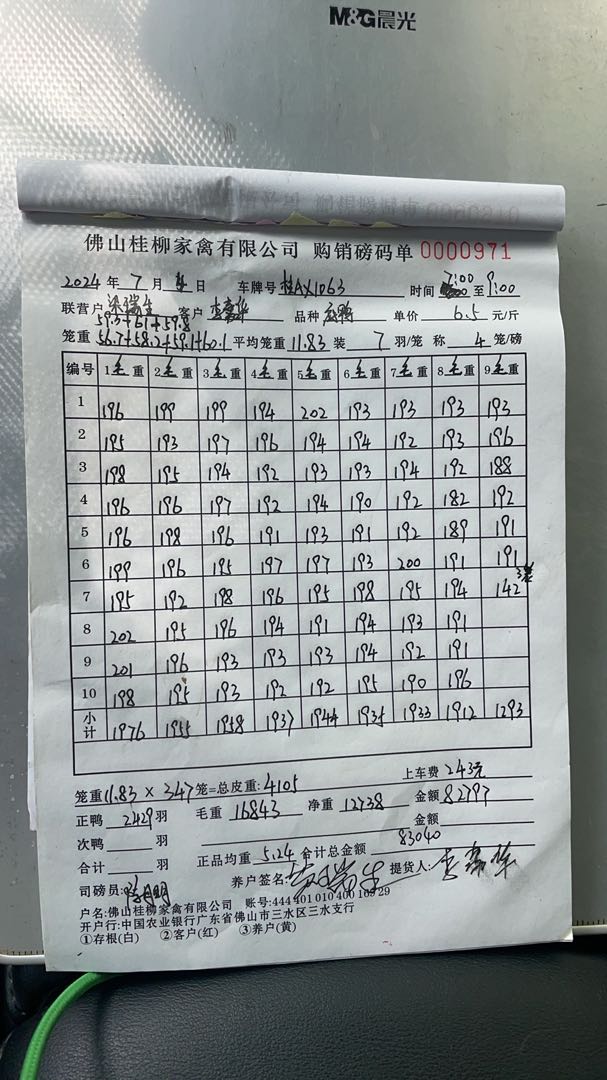 M&G晨光
佛山桂柳家禽有限公司 购销磅码单 0000971
2024 年 7 月 4 日 车牌号 桂AX1063 时间 7:00 至 9:00
联营户 梁瑞生 客户 品种 单价 6.5 元/斤
59.3+61+59.8
笼重 56.7+58.2+59.1+60.1 平均笼重 11.83 装 7 羽/笼 称 4 笼/磅
编号 1毛重 2毛重 3毛重 4毛重 5毛重 6毛重 7毛重 8毛重 9毛重
1 196 199 199 194 202 193 193 193 193
2 195 193 197 196 194 194 192 193 196
3 198 195 194 192 193 193 194 192 188
4 196 196 197 192 194 190 192 182 192
5 196 198 196 191 193 191 192 189 191
6 199 196 195 197 197 193 200 191 191
7 195 192 198 196 195 198 195 194 142
8 202 195 196 194 191 194 193 191
9 201 196 193 193 193 194 192 191
10 198 195 193 192 192 195 190 196
小计 1976 1955 1958 1937 1944 1935 1933 1912 1293
上车费 243元
笼重 11.83 × 347 笼=总皮重: 4105
正鸭 2429 羽 毛重 16843 净重 12738 金额 82797
次鸭 羽 金额
合计 羽 正品均重 5.24 合计总金额 83040
司磅员: 养户签名: 提货人:
户名:佛山桂柳家禽有限公司 账号:444 401 010 400 169 29
开户行:中国农业银行广东省佛山市三水区三水支行
①存根(白) ②客户(红) ③养户(黄)